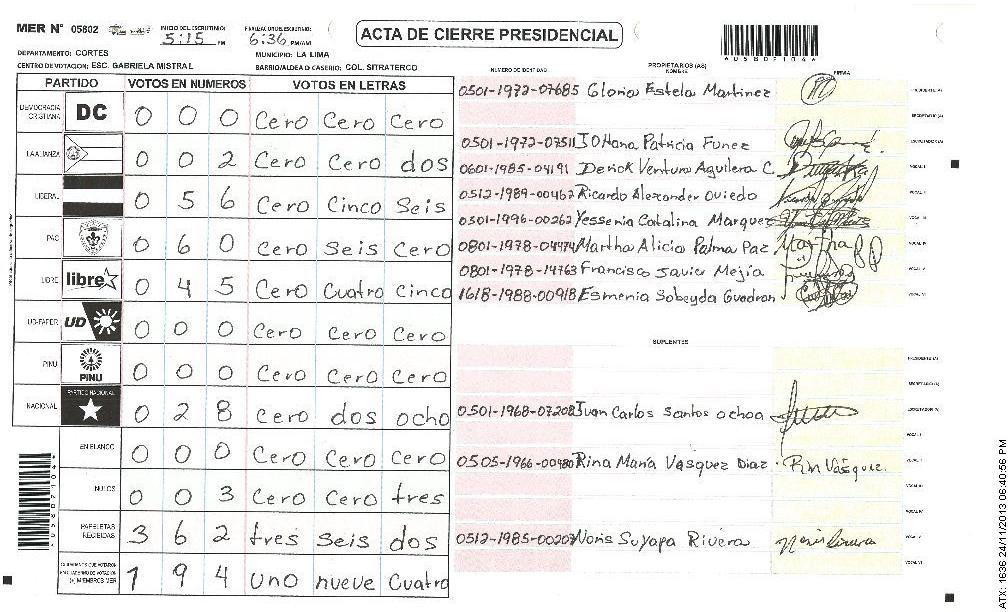 MER N° 05802
INICIO DEL ESCRUTINIO: 5:15 PM
FINALIZACION ESCRUTINIO: 6:36 PM/AM
ACTA DE CIERRE PRESIDENCIAL
DEPARTAMENTO: CORTES
MUNICIPIO: LA LIMA
CENTRO DE VOTACION: ESC. GABRIELA MISTRAL
BARRIO/ALDEA O CASERIO: COL. SITRATERCO
PARTIDO VOTOS EN NUMEROS VOTOS EN LETRAS
DEMOCRACIA CRISTIANA DC 0 0 0 Cero Cero Cero
LA ALIANZA 0 0 2 Cero Cero dos
LIBERAL 0 5 6 Cero Cinco Seis
PAC 0 6 0 Cero Seis Cero
LIBRE libre 0 4 5 Cero Cuatro Cinco
UD-FAPER UD 0 0 0 Cero Cero Cero
PINU PINU 0 0 0 Cero Cero Cero
NACIONAL PARTIDO NACIONAL 0 2 8 Cero dos ocho
EN BLANCO 0 0 0 Cero Cero Cero
NULOS 0 0 3 Cero Cero tres
PAPELETAS RECIBIDAS 3 6 2 tres seis dos
CIUDADANOS QUE VOTARON 1 9 4 uno nueve Cuatro
NUMERO DE IDENTIDAD
PROPIETARIOS (AS)
NOMBRE
FIRMA
0501-1972-07685 Gloria Estela Martinez
PRESIDENTE (A)
SECRETARIO (A)
0501-1972-07511 JOHana Patricia Funez
ESCRUTADOR (A)
0601-1985-04191 Derick Ventura Aguilera C.
VOCAL I
0512-1989-00462 Ricardo Alexander Oviedo
VOCAL II
0501-1996-00262 Yessenia Catalina Marquez
VOCAL III
0801-1978-04474 Martha Alicia Palma Paz Martha
VOCAL IV
0801-1978-14763 Francisco Javier Mejía
VOCAL V
1618-1988-00918 Esmenia Sobeyda Guadron
VOCAL VI
SUPLENTES
PRESIDENTE (A)
SECRETARIO (A)
0501-1968-07208 Juan Carlos Santos Ochoa
ESCRUTADOR (A)
VOCAL I
0505-1966-00480 Rina María Vasquez Diaz
VOCAL II
VOCAL III
VOCAL IV
0512-1985-00207 Noris Suyapa Rivera
VOCAL V
VOCAL VI
ATX: 1636 24/11/2013 06:40:56 PM